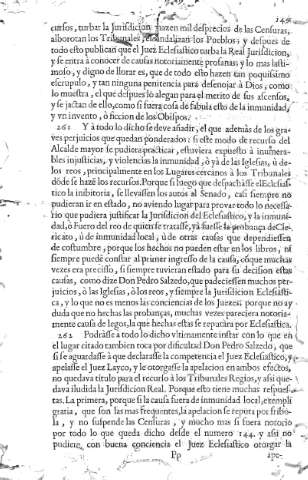 149
cursos, turbar la Jurisdicion, hazen mil desprecios de las Censuras,
alborotan los Tribunales, escandalizan los Pueblos; y despues de
todo esto publican que el Juez Eclesiastico turba la Real Jurisdicion,
y se entra à conocer de causas notoriamente profanas; y lo mas lasti-
moso, y digno de llorar es, que de todo esto hazen tan poquissimo
escrupulo, y tan ninguna penitencia para desenojar à Dios, como
lo muestra, el que despues lo alegan para el merito de sus ascensos,
y se jactan de ello, como si fuera cosa de fabula esto de la inmunidad,
y vn invento, ò ficcion de los Obispos.
261 Y à todo lo dicho se deve añadir, el que ademàs de los gra-
ves perjuicios que quedan ponderados: si este modo de recurso del
Alcalde mayor se pudiera practicar, estuviera expuesto à innumera-
bles injusticias, y violencias la inmunidad, ò yà de las Iglesias, ù de
los reos, principalmente en los Lugares cercanos à los Tribunales
dõde se hazẽ los recursos. Porque si luego que despachasse el Eclesias-
tico la inhibitoria, se llevassen los autos al Senado, casi siempre no
pudieran ir en estado, no aviendo lugar para provar todo lo necessa-
rio que pudiera justificar la Jurisdicion del Eclesiastico, y la inmuni-
dad, ò Fuero del reo de quien se tratasse, yà fuesse la probança de Cle-
ricato, ù de inmunidad local, ù de otras causas que dependiessen
de costumbre, porque los hechos no pueden estar en los libros, ni
siempre puede constar al primer ingresso de la causa, cosa que muchas
vezes era precisso, si siempre tuvieran estado para su decision estas
causas, como dize Don Pedro Salzedo, que padeciessen muchos per-
juicios, ò las Iglesias, ò los reos, y siempre la Jurisdicion Eclesiasti-
ca, y lo que no es menos las conciencias de los Juezes: porque no ay
duda que no hechas las probanças, muchas vezes pareciera notoria-
mente causa de legos, la que hechas estas se reputàra por Eclesiastica.
262 Podràse à todo lo dicho vltimamente instar con lo que en
el lugar citado tambien toca por dificultad Don Pedro Salzedo, que
si se aguardasse à que declarasse la competencia el Juez Eclesiastico, y
apelasse el Juez Layco, y le otorgasse la apelacion en ambos efectos,
no quedava titulo para el recurso à los Tribunales Regios, y assi que-
dava iludida la Jurisdicion Real. Porque esto muchas respues-
tas. La primera, porque si la causa fuera de inmunidad local, exempli
gratia, que son las mas frequentes, la apelacion se reputa por frivo-
la, y no suspende las Censuras, y mucho mas si fuera notorio
por todo lo que queda dicho desde el numero 144. y assi no
pudiera con buena conciencia el Juez Eclesiastico otorgar la
Pp ape-